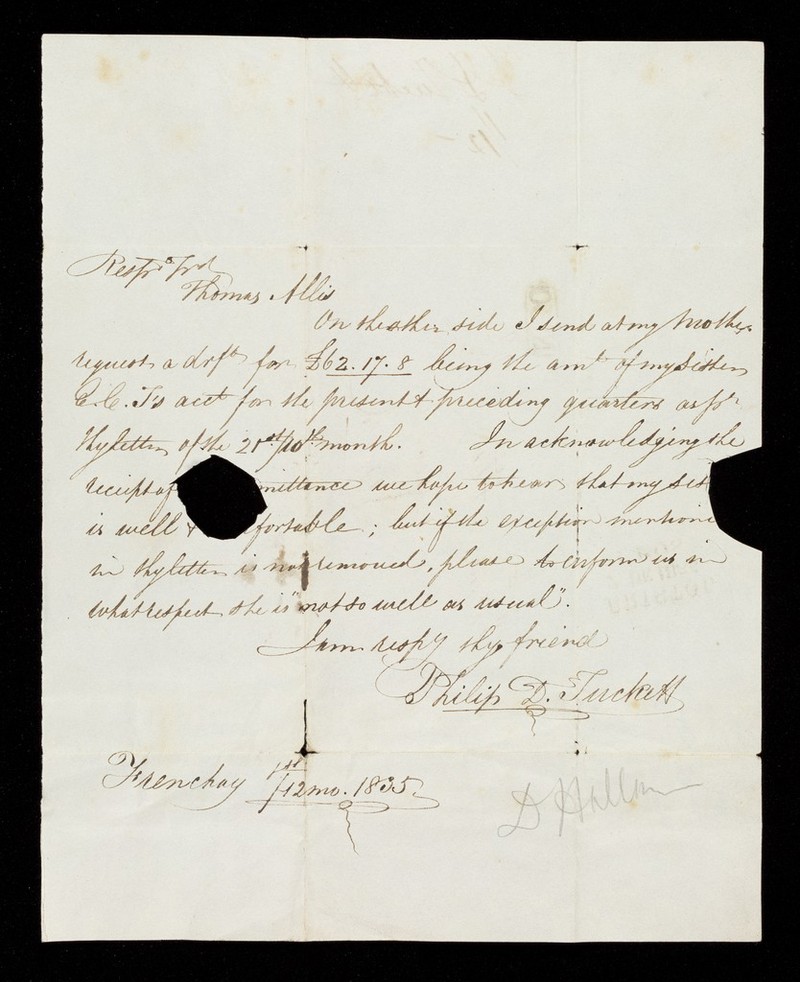 Respd frd
Thomas Allis
On the other side I send at my Mother's
request a drft for £62.17.8 being the amt of my Sister
E. C. T's acct for the present & preceding quarters as pr
thy letter of the 21st/10th month. In acknowledging the
receipt of mittance we hope to hear that my sist
is well & fortable; but if the exception mentione
in thy letter is not removed, please to inform us in
what respect she is "not so well as usual".
I am respy thy friend
Philip D. Tuckett
Frenchay 1st/12mo. 1835.